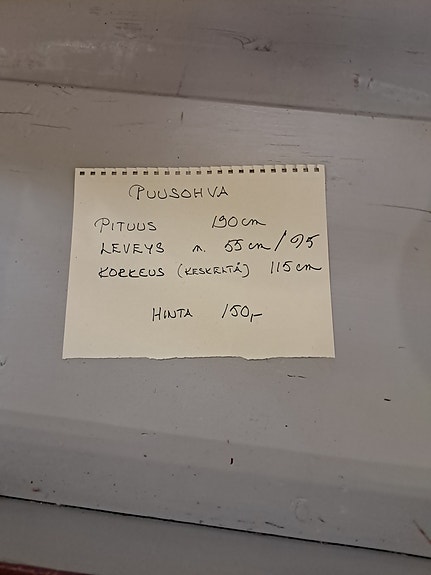 PUUSOHVA
PITUUS 190 cm
LEVEYS n. 55 cm / 95
KORKEUS (KESKELTÄ) 115 cm
HINTA 150,-